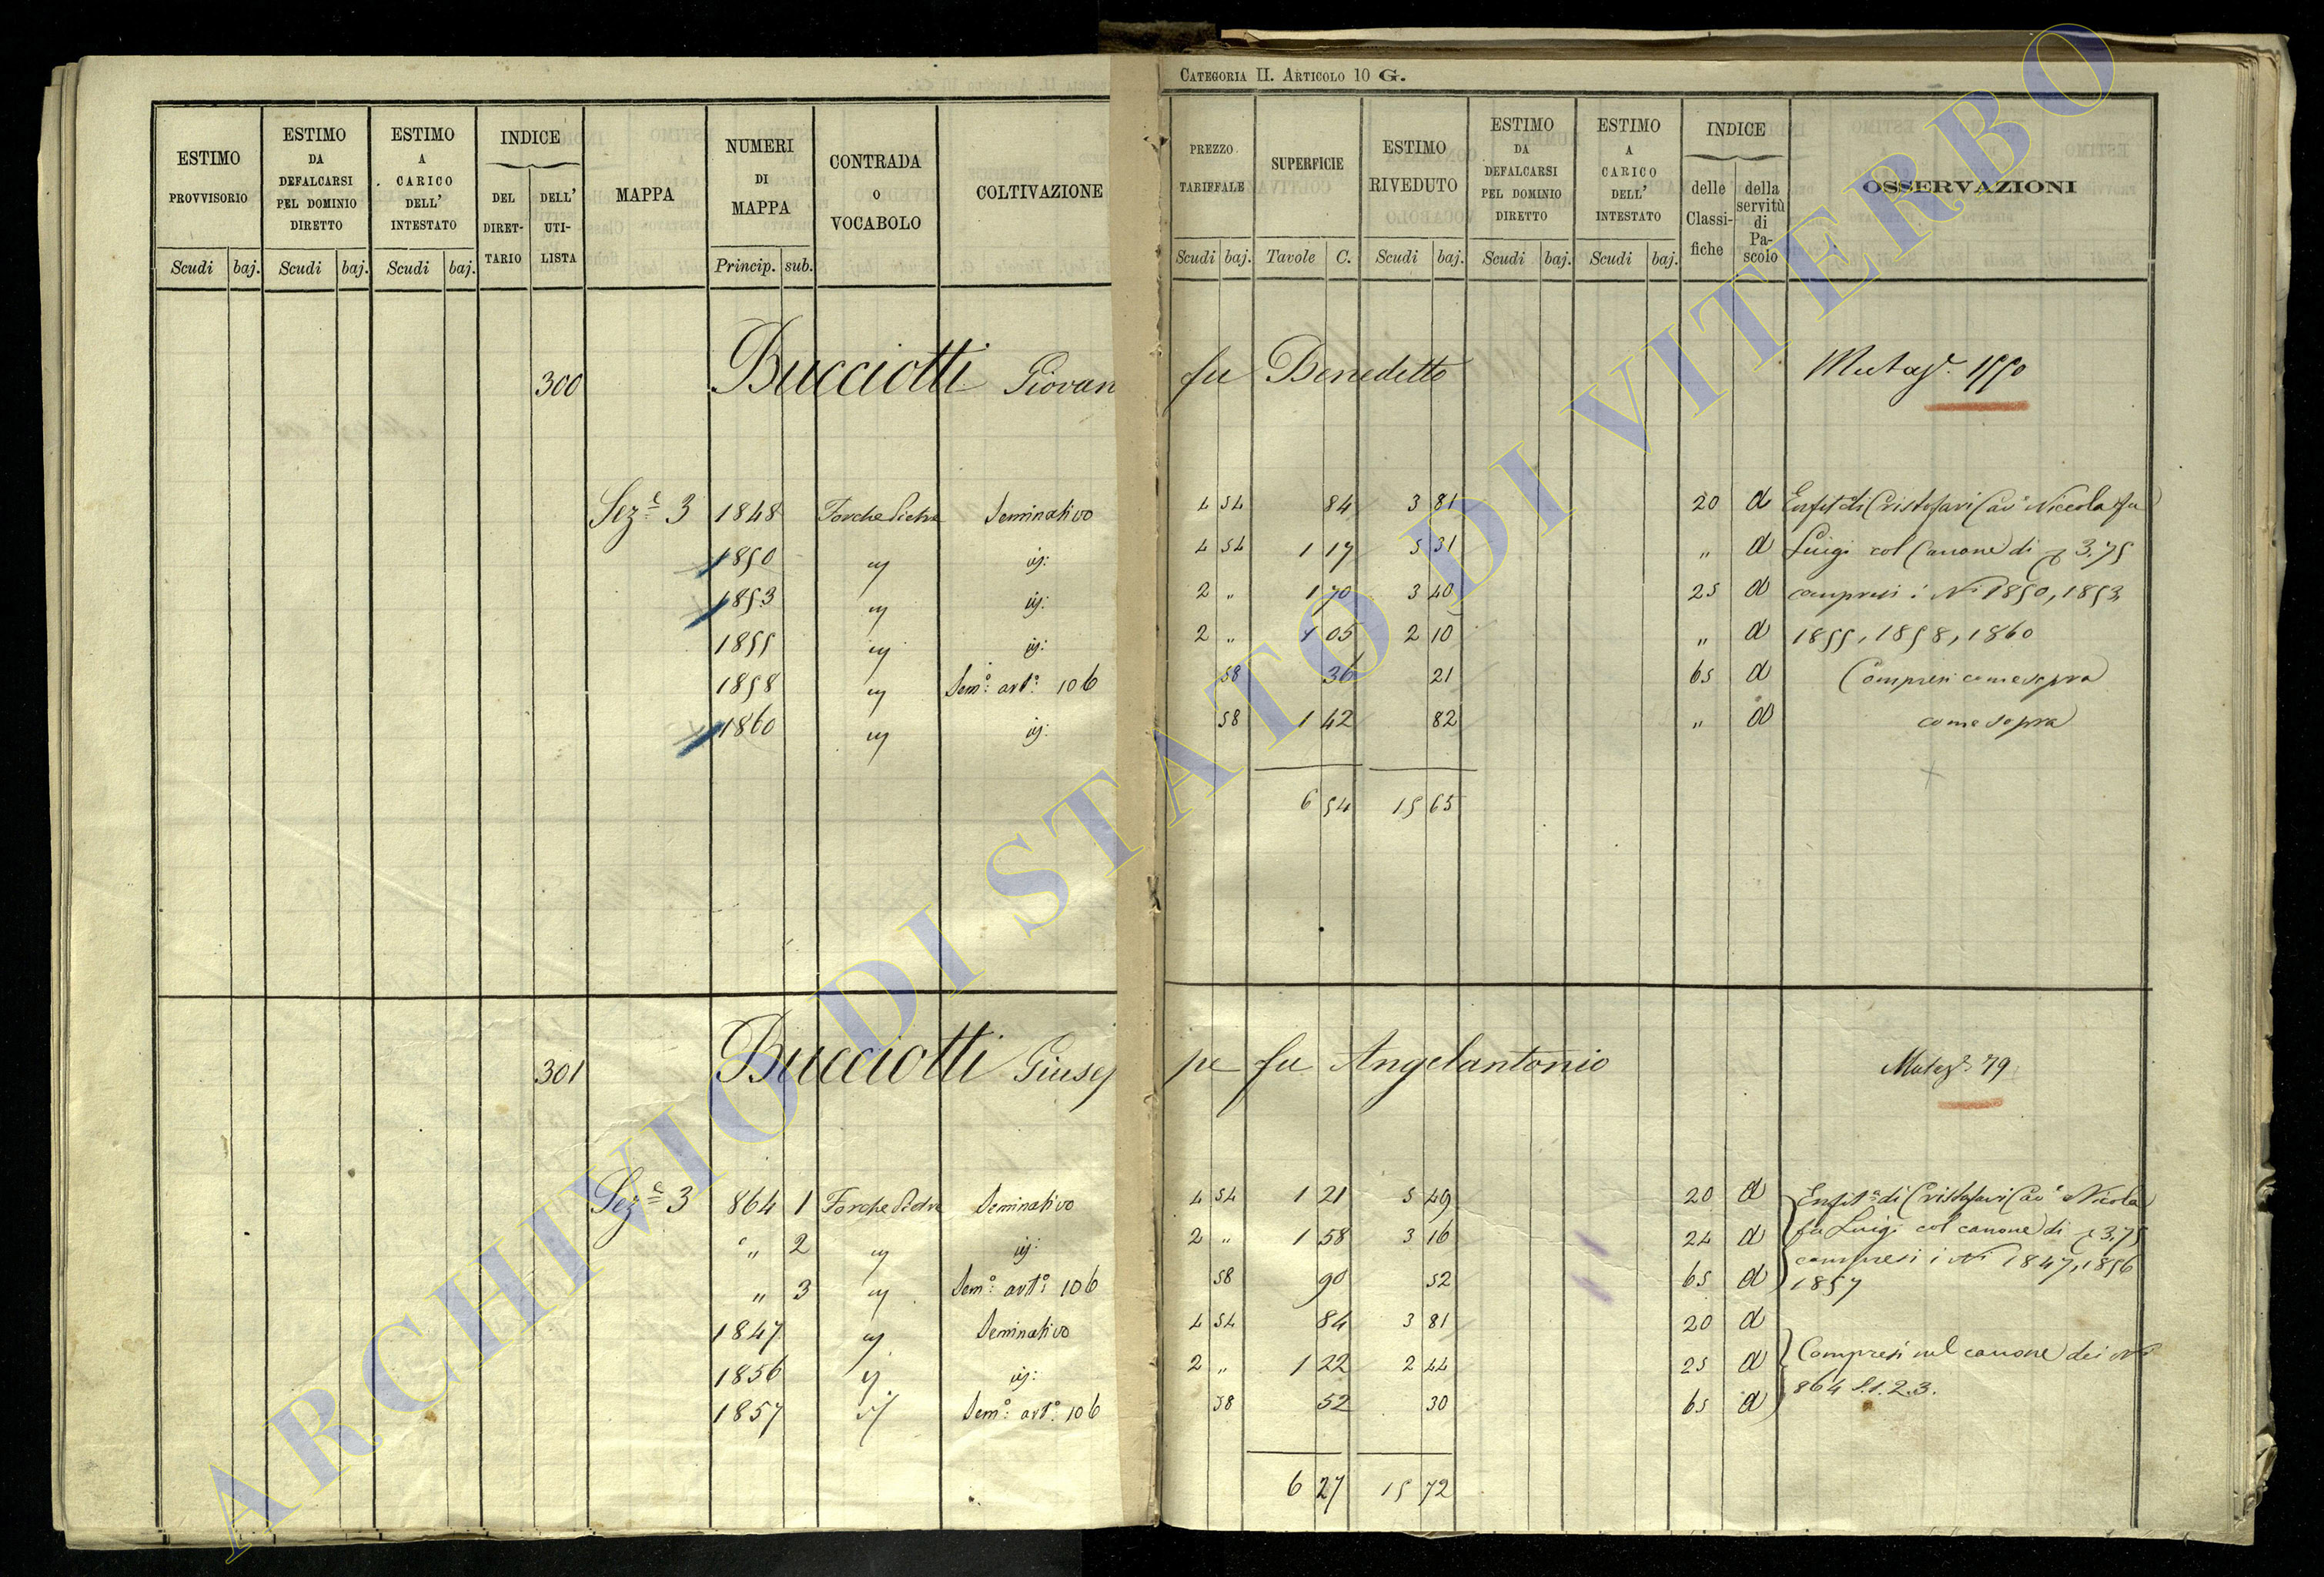 CATEGORIA II. ARTICOLO 10 G.
ESTIMO PROVVISORIO Scudi baj.
ESTIMO DA DEFALCARSI PEL DOMINIO DIRETTO Scudi baj.
ESTIMO A CARICO DELL' INTESTATO Scudi baj.
INDICE DEL DIRETTARIO DELL' UTILISTA
MAPPA
NUMERI DI MAPPA Princip. sub.
CONTRADA O VOCABOLO
COLTIVAZIONE
PREZZO TARIFFALE Scudi baj.
SUPERFICIE Tavole C.
ESTIMO RIVEDUTO Scudi baj.
ESTIMO DA DEFALCARSI PEL DOMINIO DIRETTO Scudi baj.
ESTIMO A CARICO DELL' INTESTATO Scudi baj.
INDICE delle Classifiche della servitù di Pascolo
OSSERVAZIONI
300 Bucciotti Giovan fu Benedetto
Sez.e 3 1848 Forche Pietra Seminativo 4 54 84 3 81 20 d Enfit. di Cristofari Cav. Niccola fu
1850 " id: 4 54 1 17 5 31 " d Luigi col Canone di 3.75
1853 " id: 2 " 1 70 3 40 25 d compresi i Ni 1850, 1853
1855 " id: 2 " 1 05 2 10 " d 1855, 1858, 1860
1858 " Sem.o art.o 106 58 36 21 65 d Compresi come sopra
1860 " id: 58 1 42 82 " d come sopra
6 54 15 65
301 Bucciotti Giusep pe fu Angelantonio 79
Sez.e 3 864 1 Forche Pietra Seminativo 4 54 1 21 5 49 20 d Enfit.a di Cristofari Cav.e Nicola
" 2 " id: 2 " 1 58 3 16 24 d fu Luigi col canone di 3,75
" 3 " Sem.o art.o 106 58 90 52 65 d compresi i Ni 1847, 1856
1857
1847 " Seminativo 4 54 84 3 81 20 d
1856 " id: 2 " 1 22 2 44 25 d Compresi nel canone dei Ni
1857 " Sem.o art.o 106 58 52 30 65 d 864 S.1.2.3.
6 27 15 72
ARCHIVIO DI STATO DI VITERBO